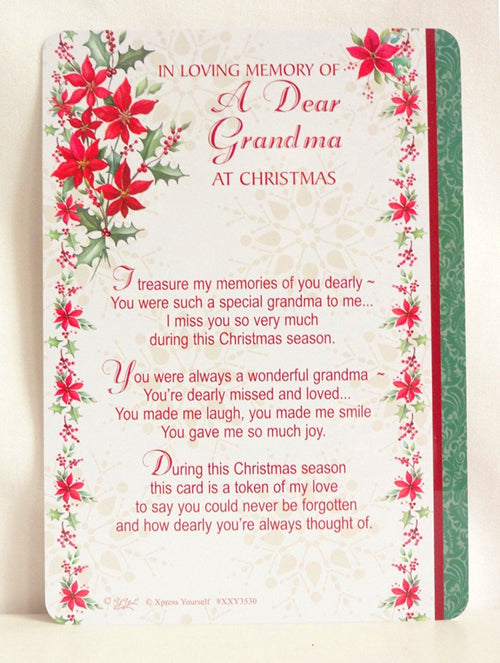 IN LOVING MEMORY OF
A Dear
Grandma
AT CHRISTMAS
I treasure my memories of you dearly ~
You were such a special grandma to me...
I miss you so very much
during this Christmas season.
You were always a wonderful grandma ~
You're dearly missed and loved...
You made me laugh, you made me smile
You gave me so much joy.
During this Christmas season
this card is a token of my love
to say you could never be forgotten
and how dearly you're always thought of.
© © Xpress Yourself #XXY3530